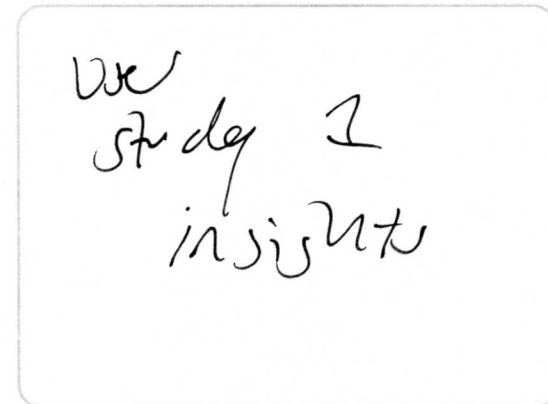 User
study 1
insights